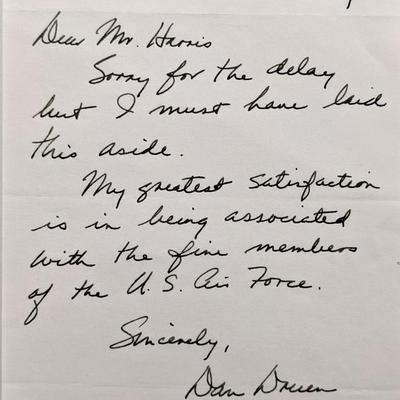 Dear Mr. Harris
Sorry for the delay
but I must have laid
this aside.
My greatest satisfaction
is in being associated
with the fine members
of the U.S. Air Force.
Sincerely,
Dan Druen